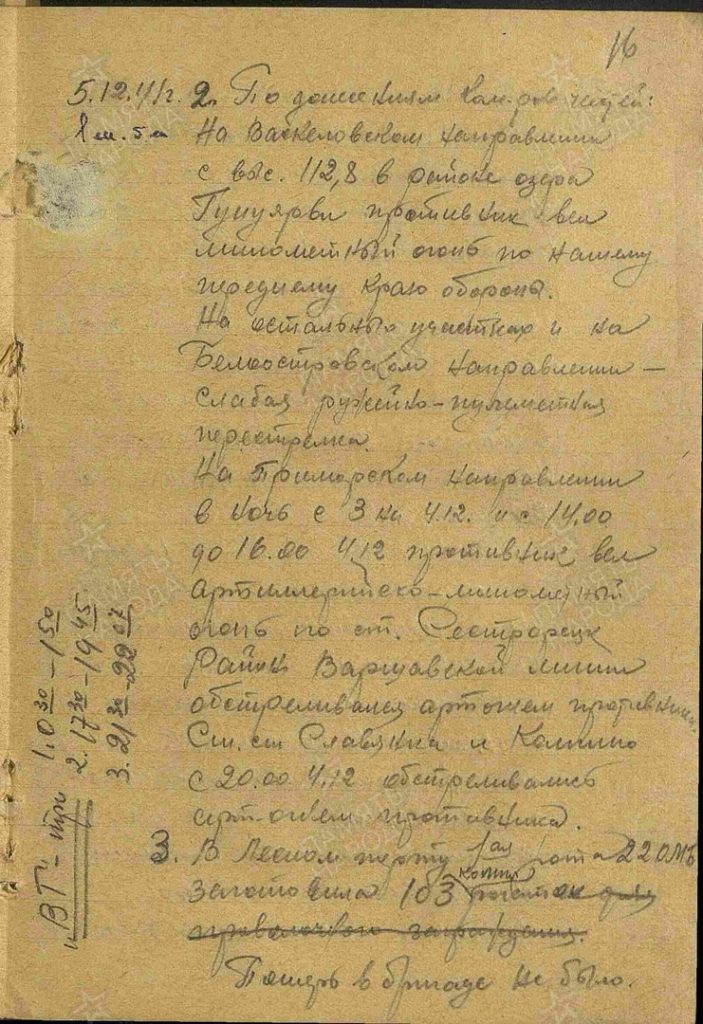 16
5.12.41г. 2. По донесениям ком-ров частей:
На Васкеловском направлении
с выс. 112,8 в районе озера
противник вел
минометный огонь по нашему
переднему краю обороны.
На остальных участках и на
Белоостровском направлении –
слабая ружейно-пулеметная
перестрелка.
На Приморском направлении
в ночь с 3 на 4.12. и с 14.00
до 16.00 4.12 противник вел
артиллерийско-минометный
огонь по ст. Сестрорецк
Район Варшавской линии
обстреливался артогнем противника.
Ст. ст Славянка и Колпино
с 20.00 4.12 обстреливались
арт-огнем противника.
3. В Лесном порту 1ая рота 22 ОМБ
заготовила 103 рогаток для
проволочного заграждения.
Потерь в бригаде не было.
"ВТ" - три
1. 0 30 – 1 50
2. 17 30 – 19 45
3. 21 30 – 22 07